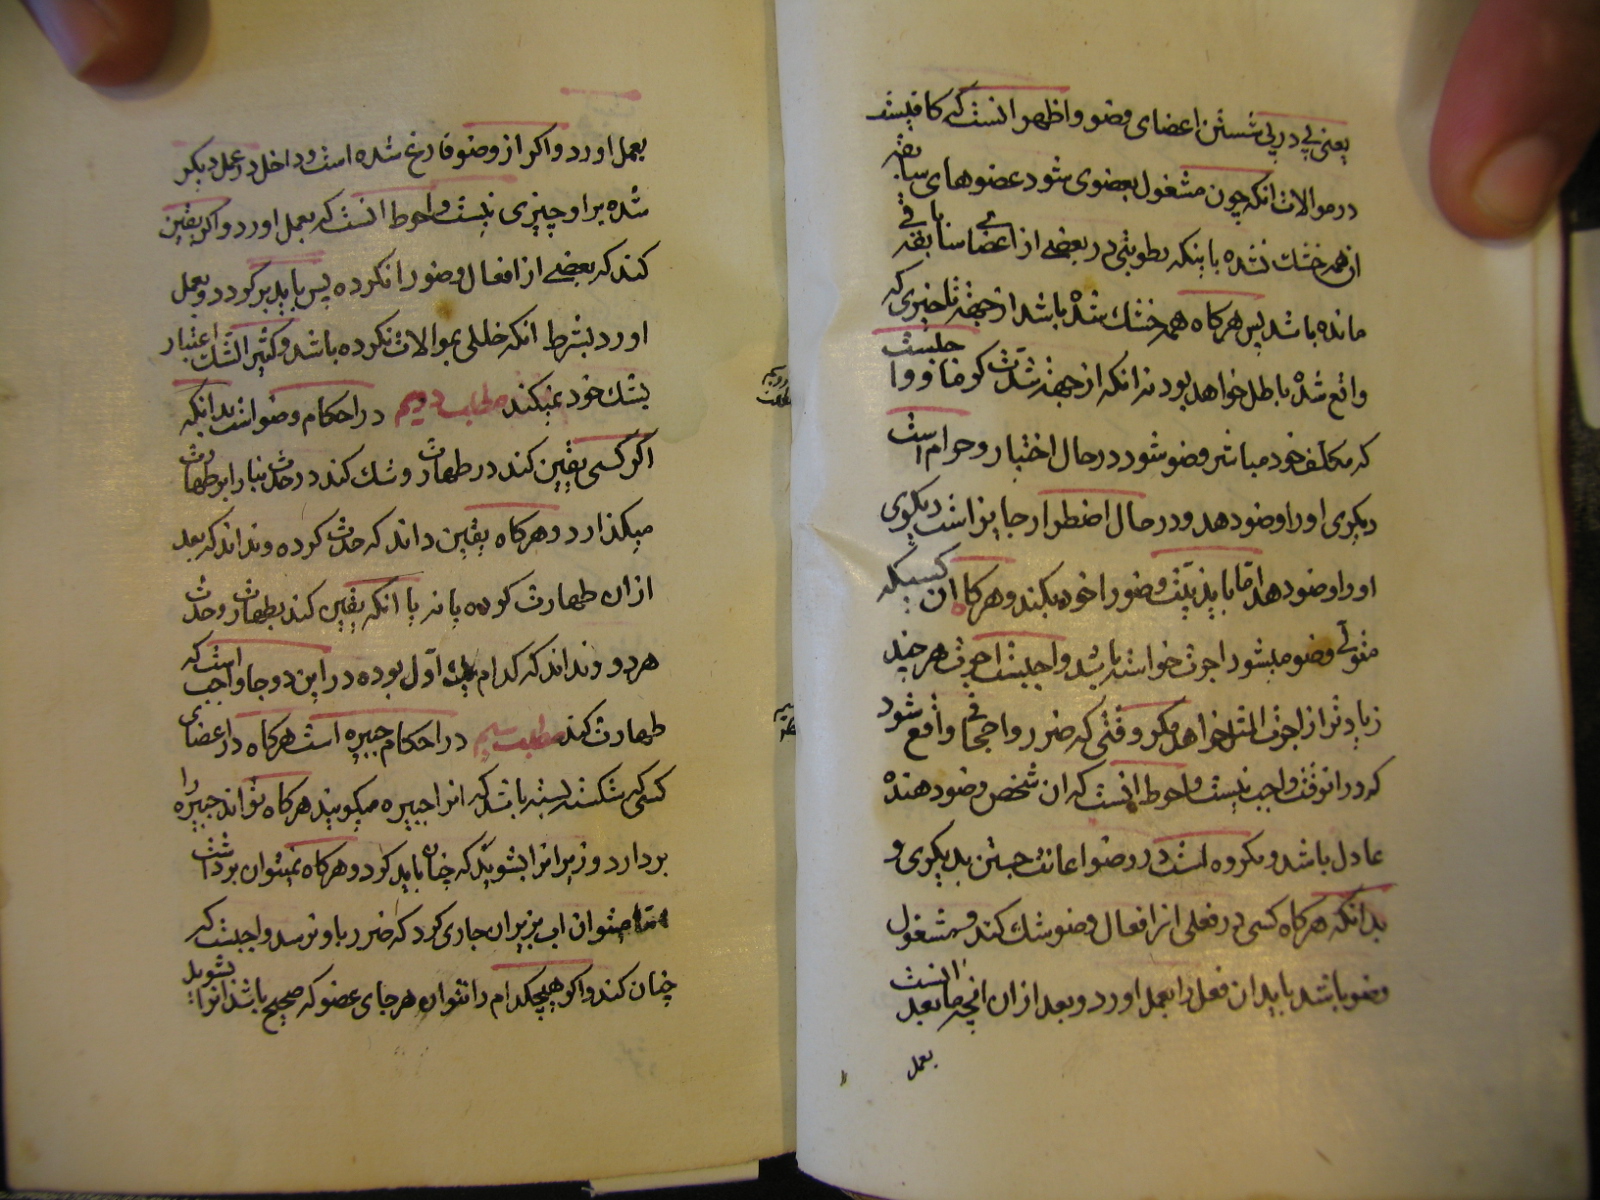 یعنی پی در پی شستن اعضای وضو و اظهر انست که کافیست
در موالات انکه چون مشغول بعضوی شود عضوهای سابقه
از همه خشك نشده با بنکه رطوبتی در بعضی از اعضای سابقه باقی
مانده باشد پس هرکاه همه خشك شده باشد از جهة تاخیری که
واقع شده باطل خواهد بود نه انکه از جهة شدّت کرما و واجبست
که مکلف خود مباشر وضو شود در حال اختیار و حرام است
دیکری او را وضو دهد و در حال اضطرار جایز است دیکری
او را وضو دهد امّا باید نیّت وضو را خود بکند و هرکاه ان کسیکه
متولّی وضو میشود اجرت خواسته باشد واجبست اجرت هر چند
زیادتر از اجرت المثل خواهد مکر وقتی که ضرر واقع شود
که در انوقت واجب نیست و احوط انست که ان شخص وضو دهنده
عادل باشد و مکروه است در وضو اعانت جستن بدیکری و
بدانکه هرکاه کسی در فعلی از افعال وضو شك کند و مشغول
وضو باشد باید ان فعل را بعمل اورد و بعد از ان انچه ما بعد انست
بعمل
بعمل اورد و اکر از وضو فارغ شده است و داخل در عمل دیکر
شده بر او چیزی نیست و احوط انست که بعمل اورد و اکر یقین
کند که بعضی از افعال وضو را نکرده پس باید برکردد و بعمل
اورد بشرط انکه خللی بموالات نکرده باشد و کثیر الشك اعتبار
بشك خود نمیکند مطلب دویم در احکام وضو است بدانکه
اکر کسی یقین کند در طهارت و شك کند در حدث بنا را بر طهارت
میکذارد و هرکاه یقین داند که حدث کرده و نداند که بعد
از ان طهارت کرده یا نه یا انکه یقین کند بطهارت و حدث
هر دو و نداند که کدام یك اوّل بوده در این دو جا واجب است که
طهارت کند مطلب سیم در احکام جبیره است هرکاه در اعضای
کسی که شکسته بسته باشد که انرا جبیره میکویند هرکاه تواند جبیره را
بردارد و زیر انرا بشوید که چنان باید کرد و هرکاه نمیتوان برداشت
امّا میتوان اب بزیر ان جاری کرد که ضرر باو نرسد واجبست که
چنان کند و اکر هیچکدام را نتوان هر جای عضو که صحیح باشد انرا بشوید